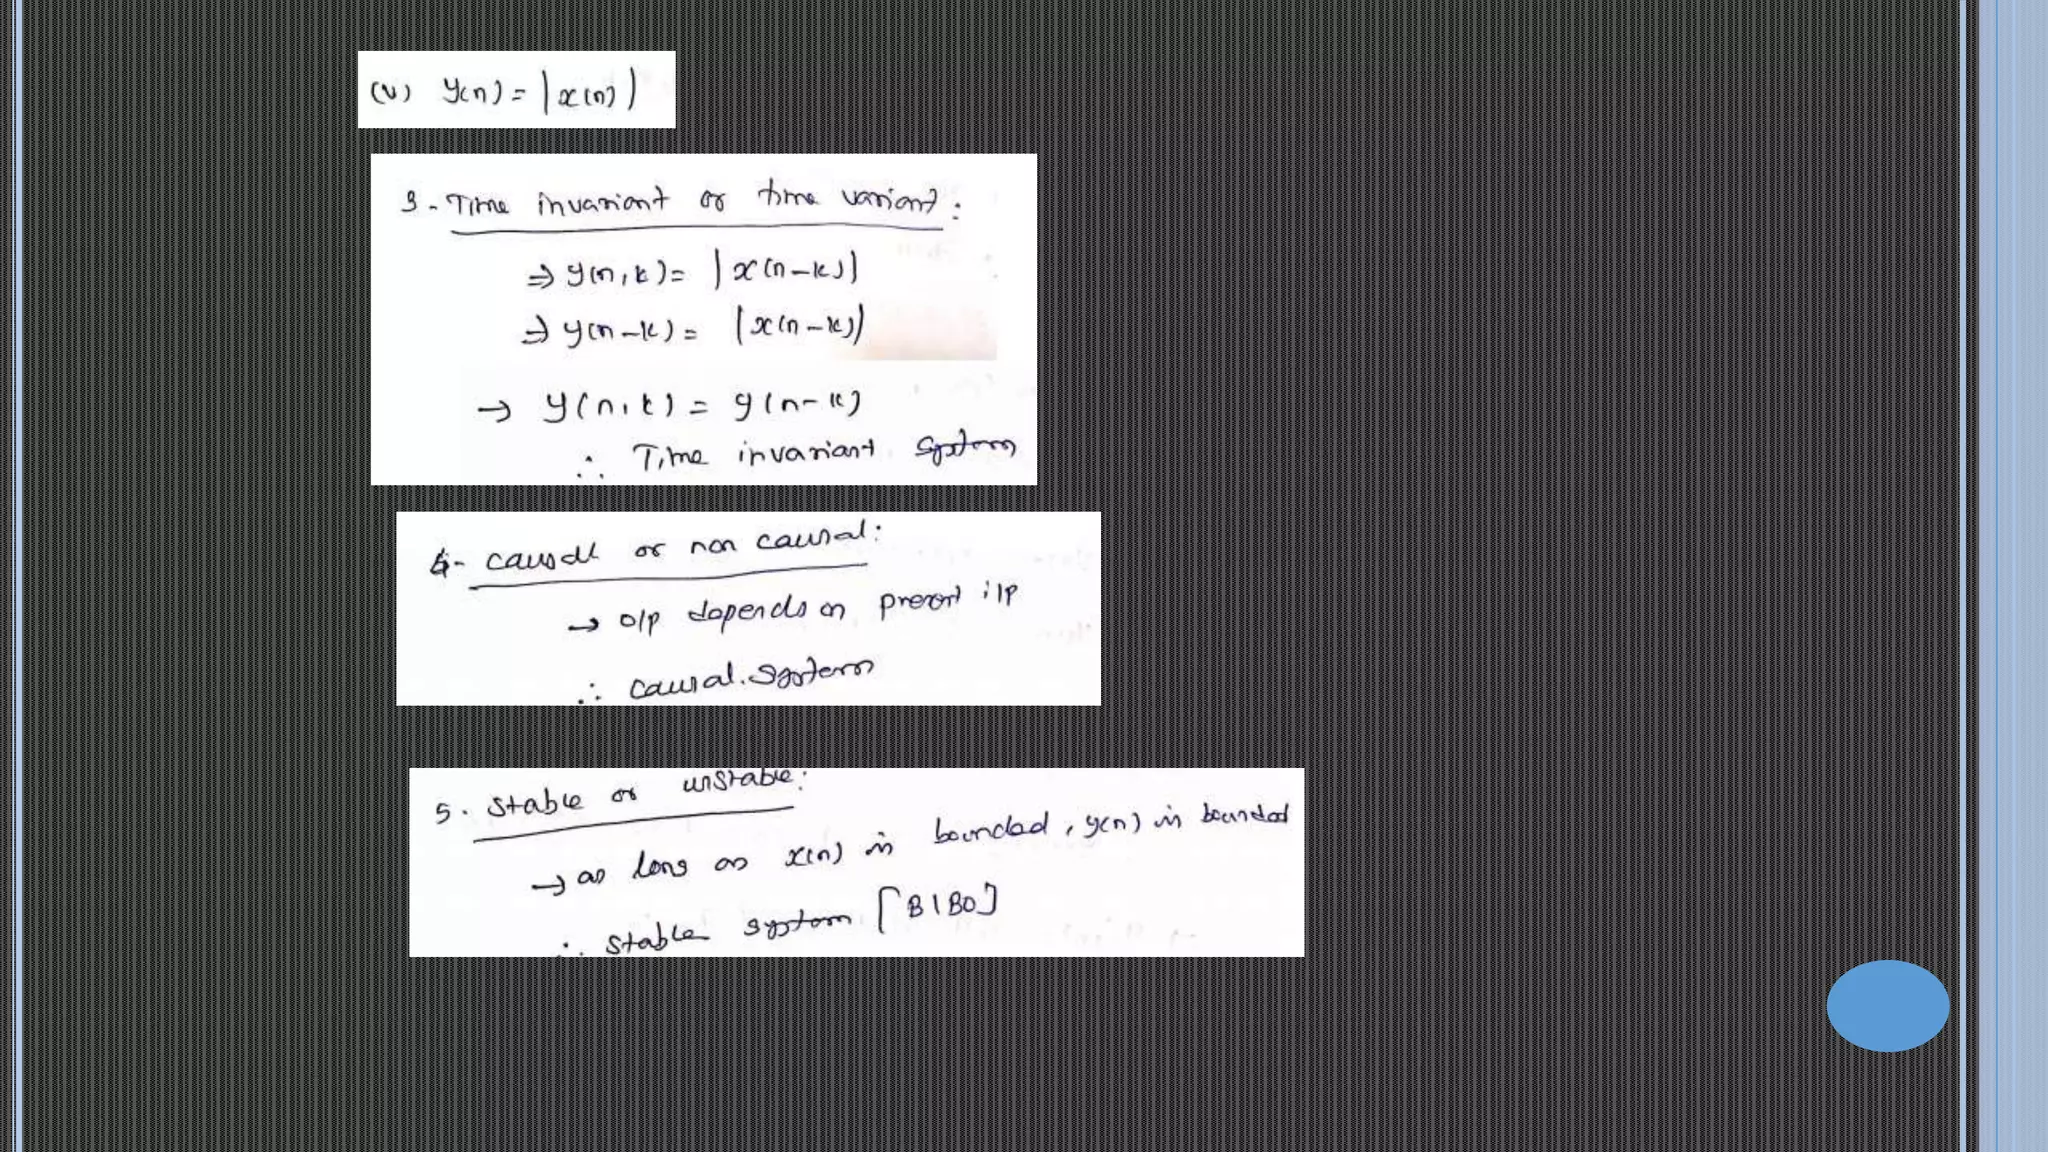 (v) y(n) = |x(n)|
3 - Time invariant or time variant :
⇒ y(n,k) = |x(n-k)|
⇒ y(n-k) = |x(n-k)|
→ y(n,k) = y(n-k)
∴ Time invariant system
4 - causal or non causal :
→ o/p depends on present i/p
∴ causal. system
5. stable or unstable :
→ as long as x(n) is bounded, y(n) is bounded
∴ stable system [BIBO]